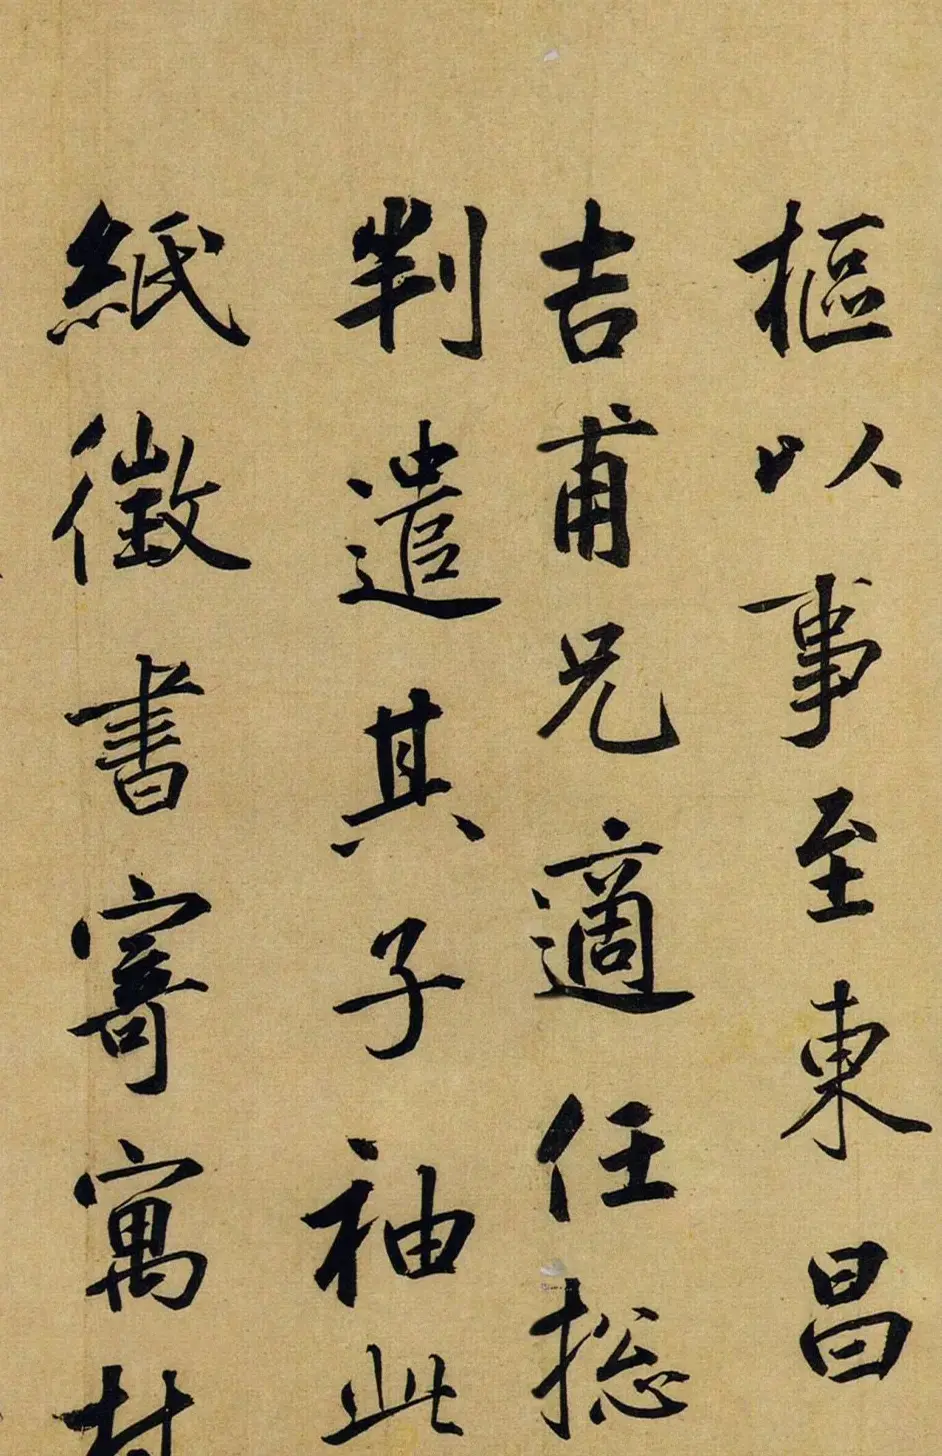 樞以事至東昌
吉甫兄適任摠
判遣其子袖此
紙徵書寄寓村